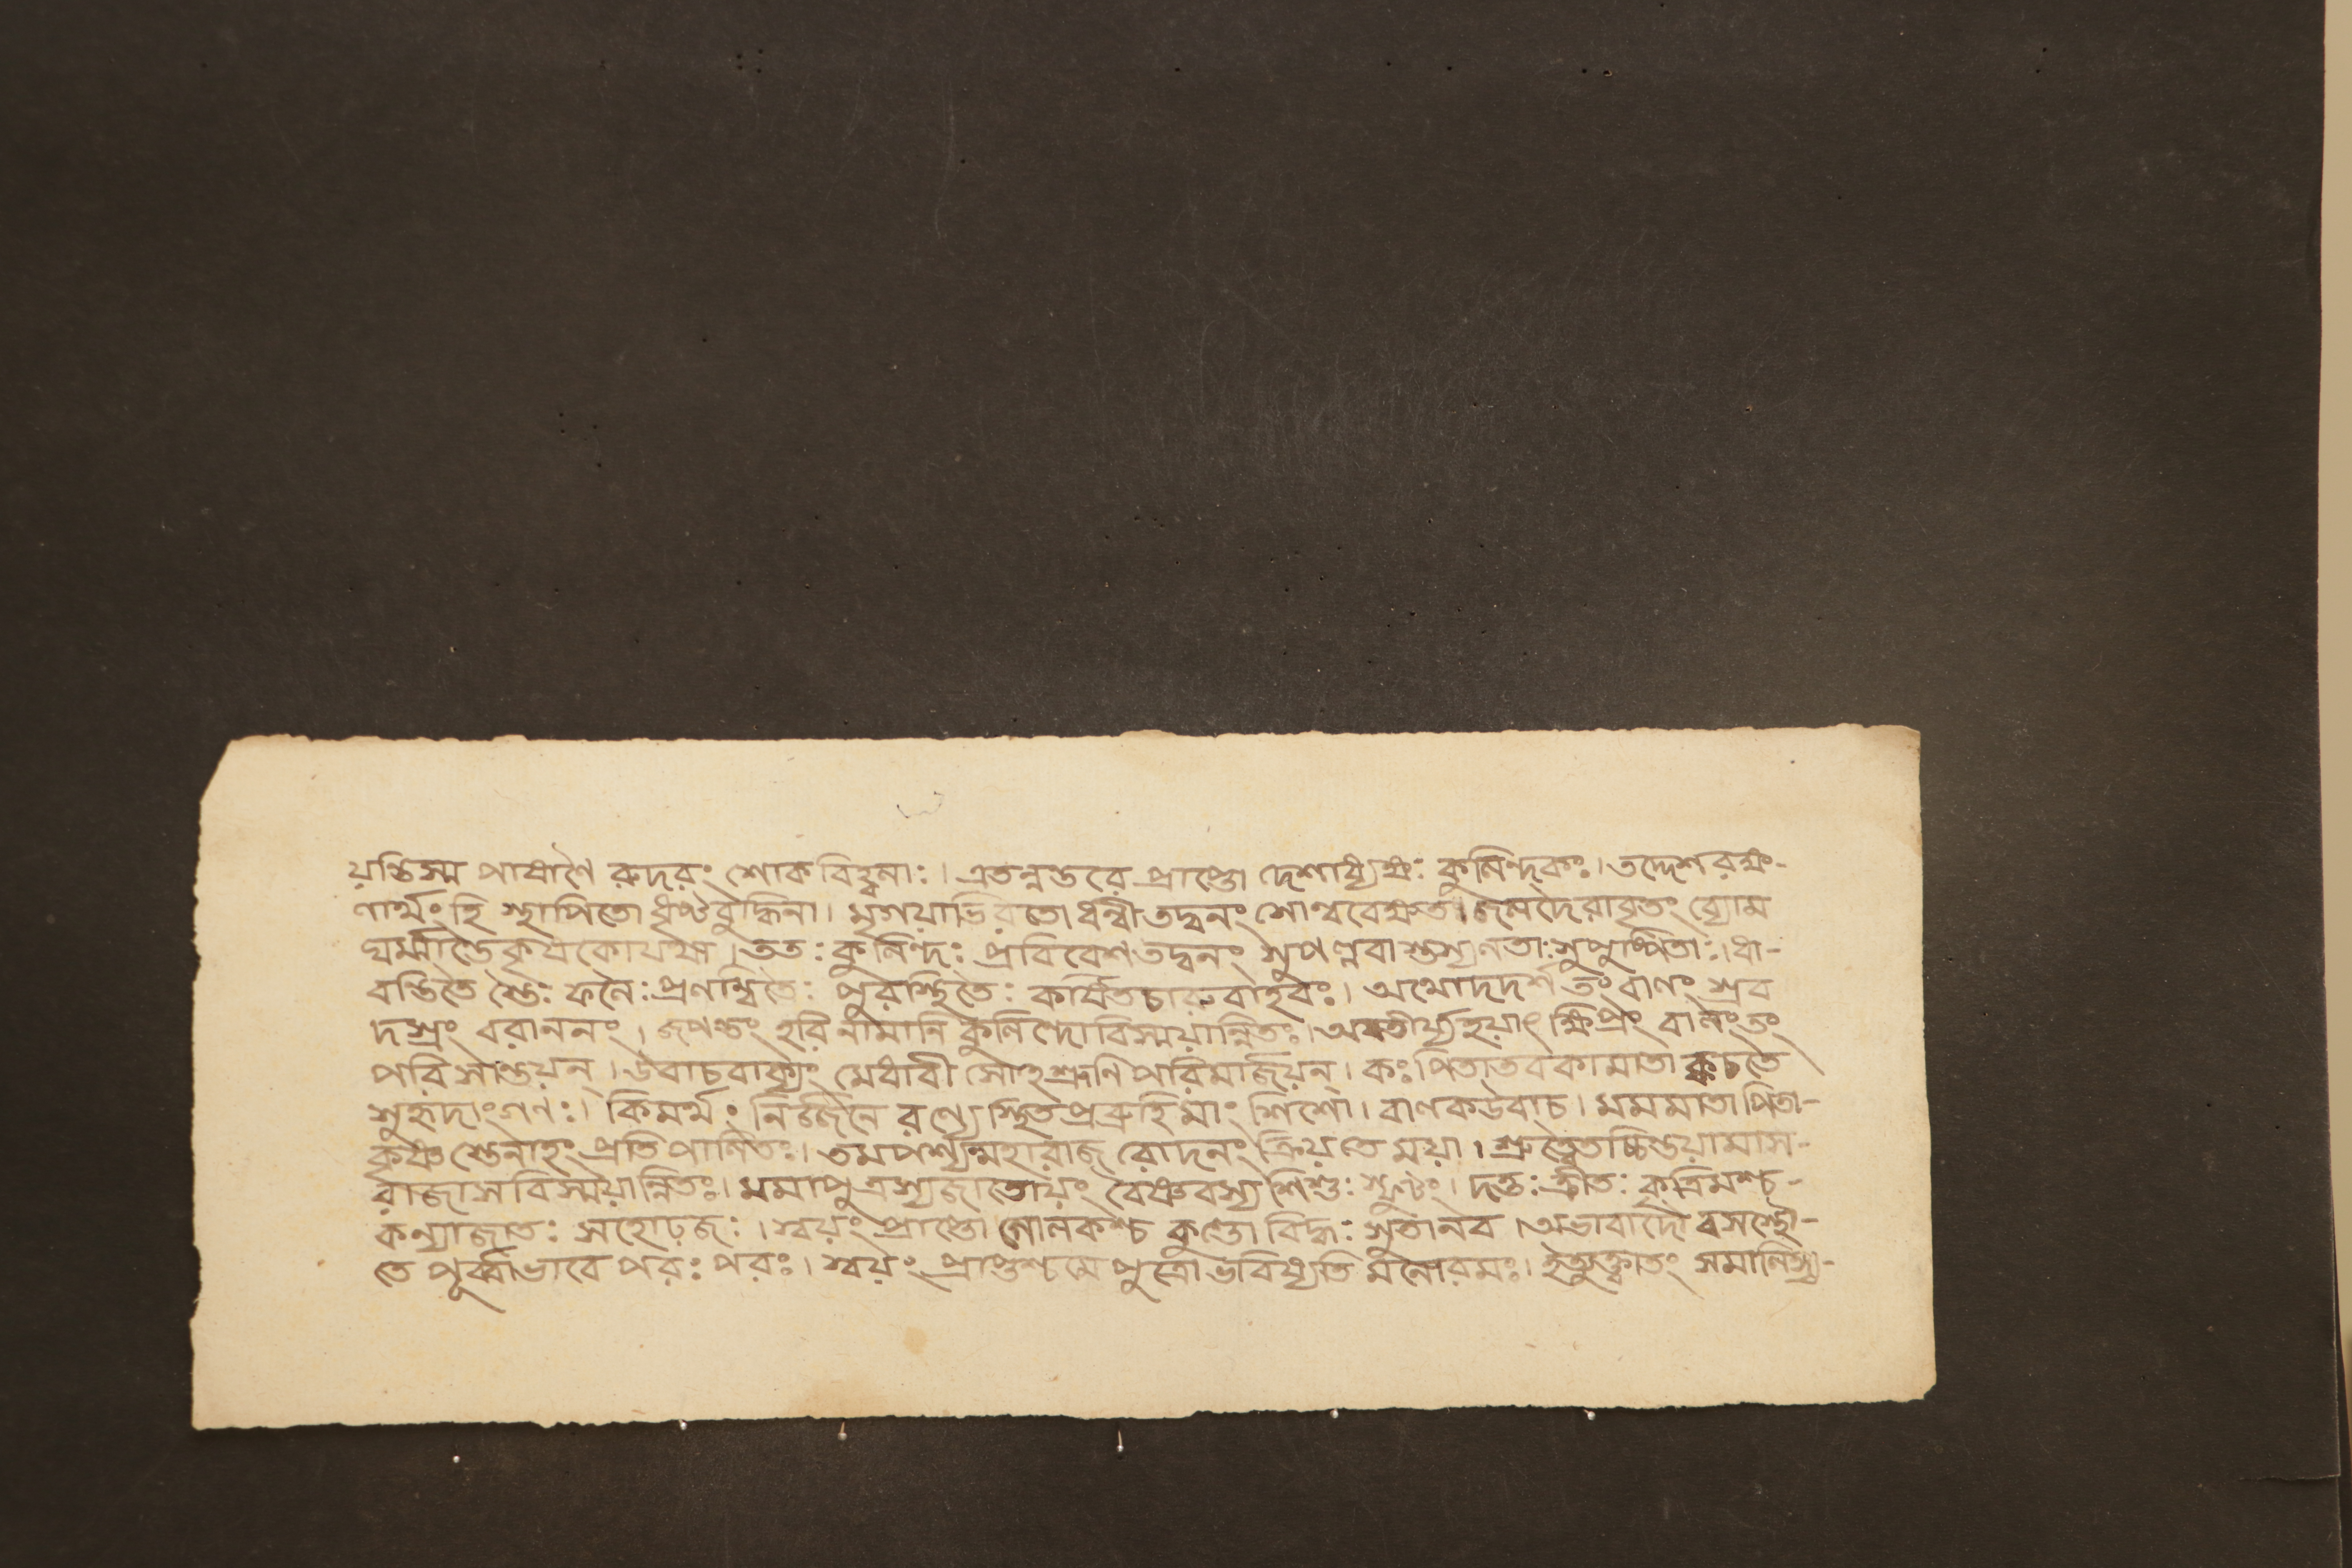 য়ন্তিস্ম পাষাণৈ রুদরং শোক বিহ্বলাঃ। এতন্নন্তরে প্রাপ্তো দেশাধ্যক্ষঃ কুলিন্দকঃ। তদ্দেশ রক্ষ-
ণার্থং হি স্থাপিতো ধৃষ্টবুদ্ধিনা। মৃগয়াভিরতো ধন্বী তদ্বনং শোন্ববেক্ষত। জলদৈরাবৃতং ব্যোম
ঘর্ম্মার্ত্তে কৃষকো যথা। ততঃ কুলিন্দঃ প্রবিবেশ তদ্বনং সুপল্লবা স্তস্য লতাঃ সুপুষ্পিতাঃ। ধা-
বন্তিতৈ স্তৈঃ ফলৈঃ প্রলম্বিতৈঃ পুরস্থিতৈঃ কর্ষিত চারুবাহবঃ। অথো দদর্শ তং বালং স্রব
দস্রং বরাননং। জপন্তং হরি নামানি কুলিন্দো বিস্ময়ান্নিতঃ। অবতীর্য্য হয়াৎ ক্ষিপ্রং বালং তং
পরি সান্ত্বয়ন্। উবাচ বাক্যং মেধাবী সোহশ্রূণি পরিমার্জয়ন্। কঃ পিতা তব কা মাতা ক্বচ তে
সুহৃদাং গণঃ। কিমর্থং নির্জ্জনে রণ্যে স্থিত প্রব্রূহি মাং শিশো। বালক উবাচ। মম মাতা পিতা-
কৃষ্ণ স্তেনাহং প্রতি পালিতঃ। তমপশ্যন্মহারাজ রোদনং ক্রিয়তে ময়া। শ্রুত্বৈতচ্চিন্তয়ামাস-
রাজা স বিস্ময়ান্নিতঃ। মমাপুত্রস্য জাতোয়ং বৈষ্ণবস্য শিশুঃ স্ফুটং। দত্তঃ ক্রীতঃ কৃত্রিমশ্চ-
কন্যাজাতঃ সহোঢ়জঃ। স্বয়ং প্রাপ্তো গোলকশ্চ কুণ্ডো বিদ্ধঃ সুতা নব। অভাবাদৌ রসস্থৌ-
তে পূর্ব্বাভাবে পরঃ পরঃ। স্বয়ং প্রাপ্তশ্চ মে পুত্রো ভবিষ্যতি মনোরমঃ। ইত্যুক্ত্বা তং সমালিঙ্গ্য-